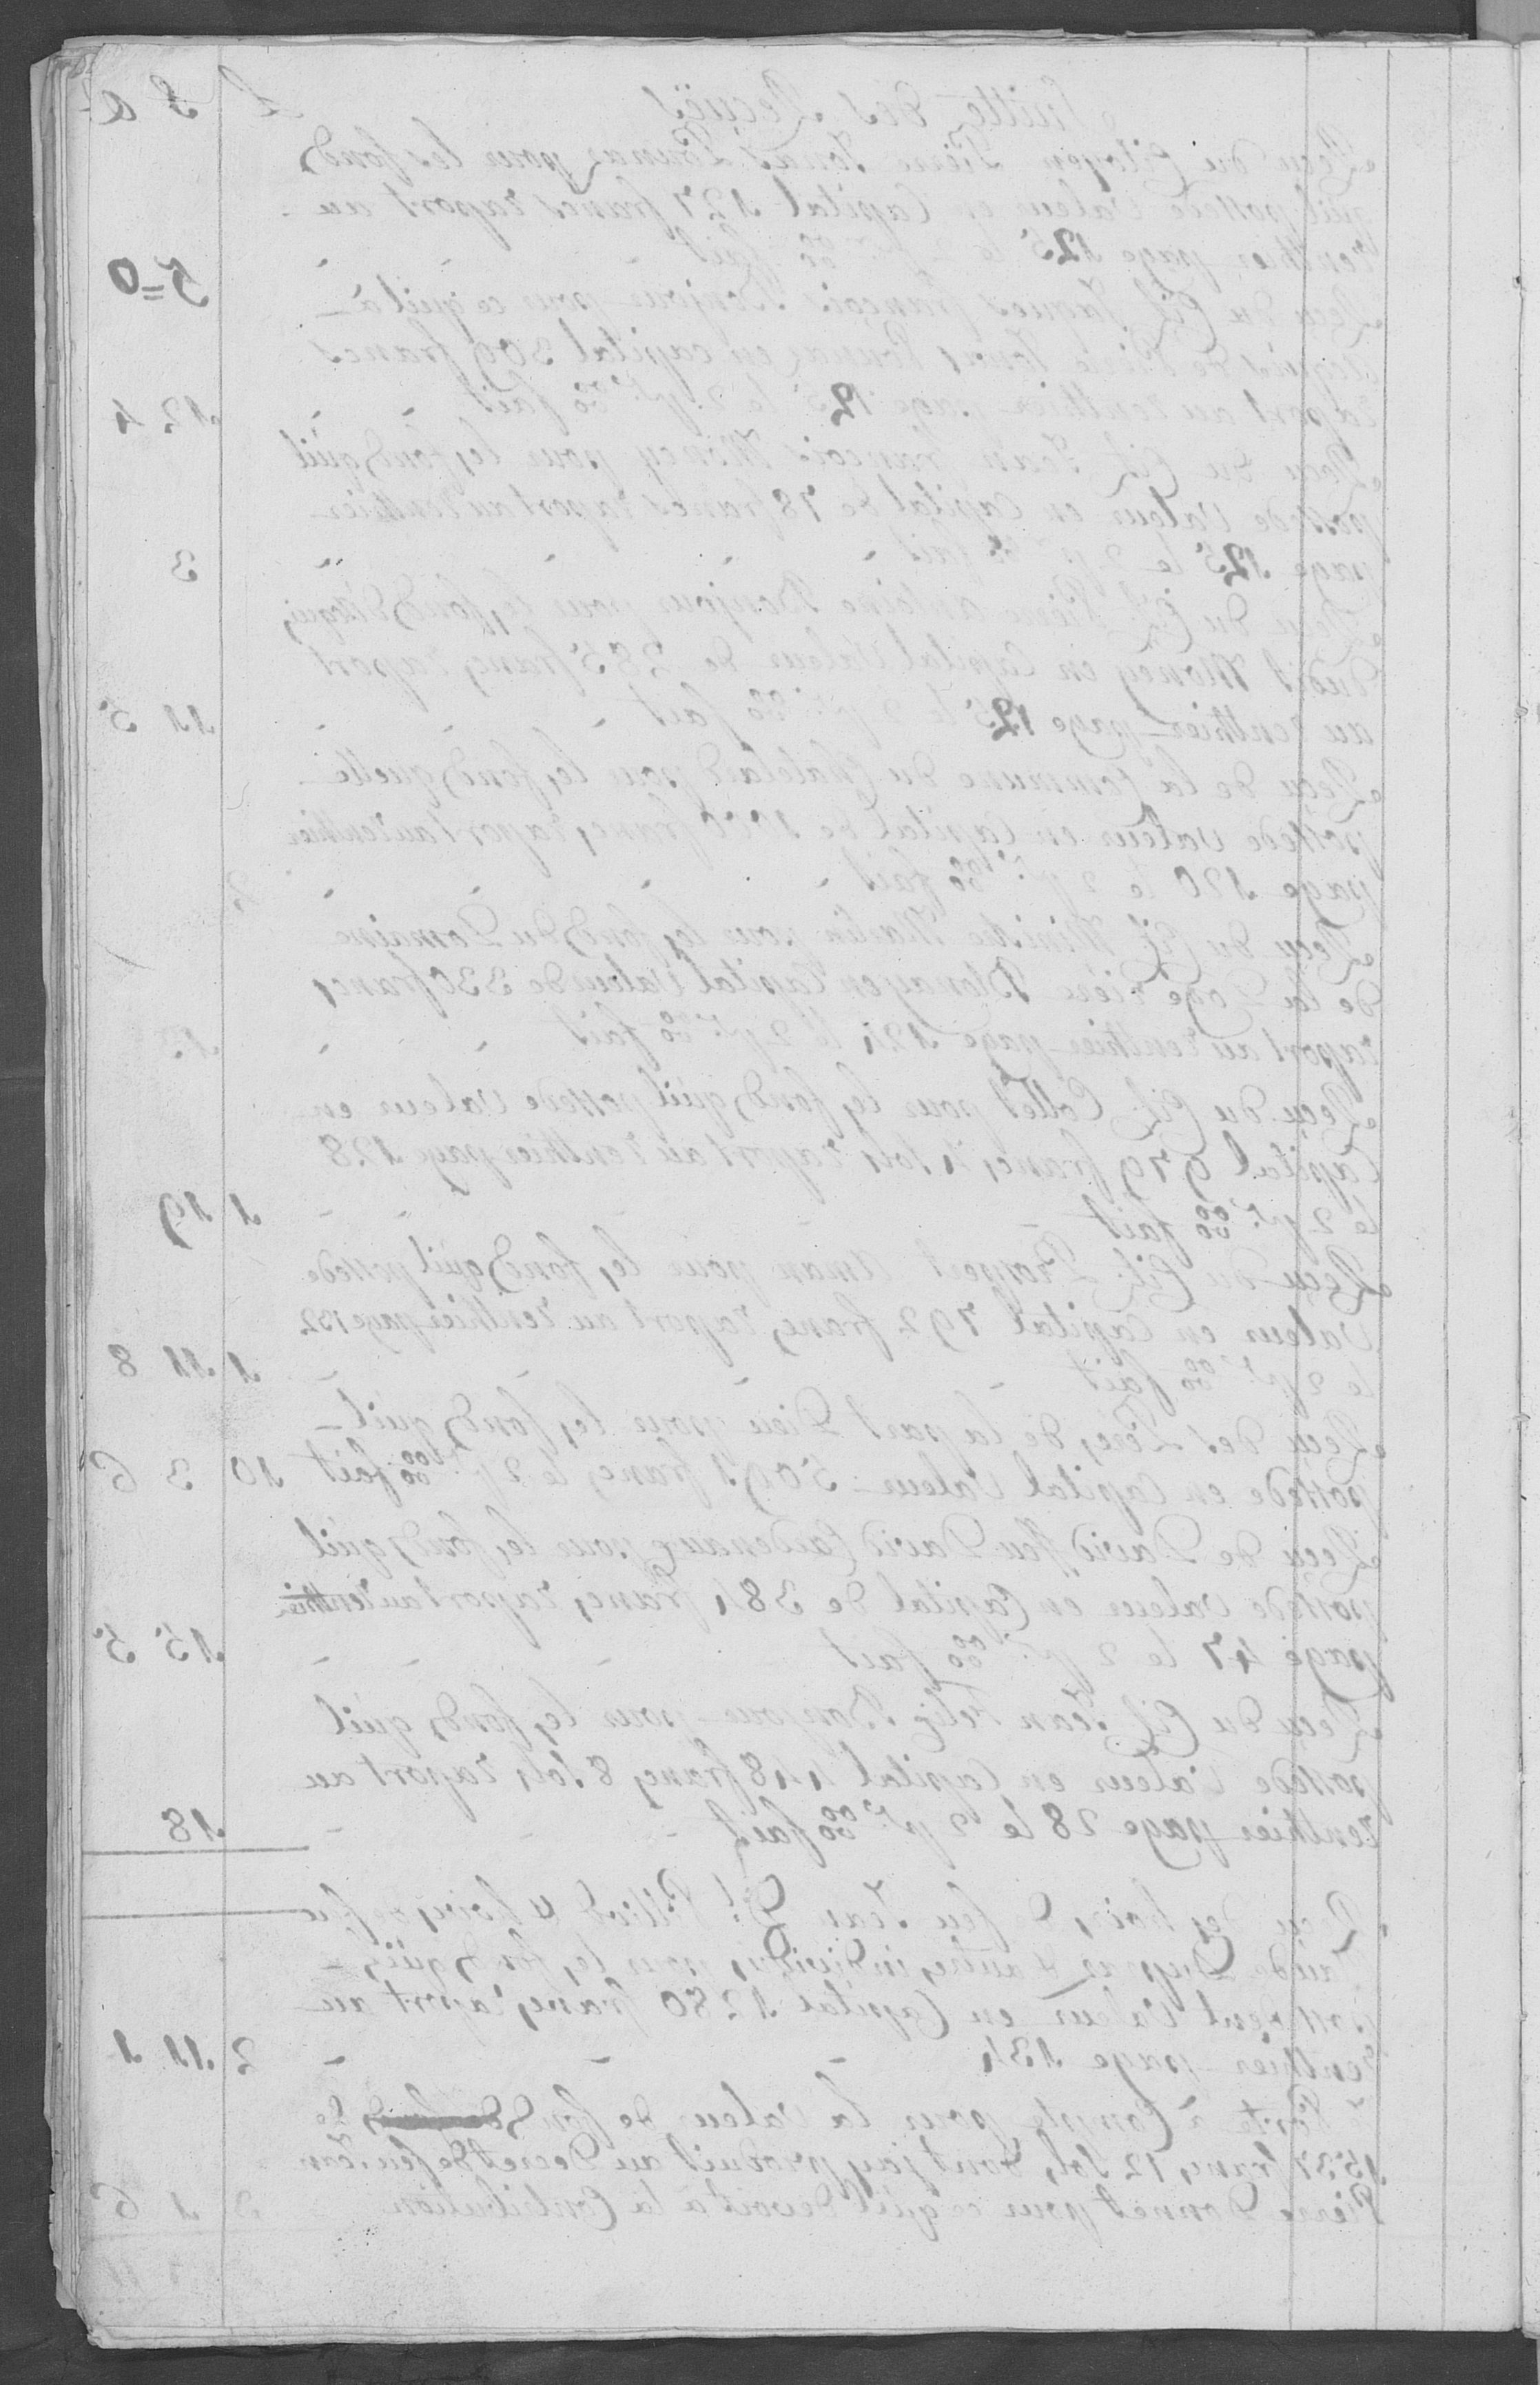 Suitte des Recües L S d
Reçu du Citoyen Pière Louis Dunas pour les fond
quil possede valeur en Capital 127 francs raport au
renthier page 125 le 2 pr 000 fait 5=0
Reçu du Cit. Jaques françois Bonjour pour ce quil à
acquis de Pière Louis Dunas en capital 309 francs
raport au renthier page 125 le 2 pr 000 fait 12 4
Reçu du Cit. Jean françois Money pour les fond quil
possede valeur en Capital de 78 francs raport au renthier
page 125 le 2 pr 000 fait 3
Reçu du Cit. Pière antoine Bonjour pour les fond
dudit Money en Capital valeur de 285 francs raport
au renthier page 125 le 2 pr 000 fait 11 5
Reçu de la Commune du Chatelard pour les fond quelle
possede valeur en Capital de 1000 francs raport au renthier
page 120 le 2 pr 000 fait 2
Reçu du Cit. Ministre Martin pour les fond du Domaine
de la rière Blonay en Capital valeur de francs
raport au renthier page 124 le 2 pr 000 fait
Reçu du Cit. Collet pour les fond quil possede valeur en
Capital 979 francs 4 sols raport au renthier page 128
le 2 pr 000 fait 1 19
Reçu du Cit. pour les fond quil possede
valeur en Capital 792 francs raport au renthier page 132
le 2 pr 000 fait 1 11 8
Reçu des de la part Dieu pour les fond quil
possede en Capital valeur 5091 francs le 2 pr 000 fait 10 3 6
Reçu de David ffeu David pour les fond quil
possede valeur en Capital de 384 francs raport au renthier
page 47 le 2 pr 000 fait 15 5
Reçu du Cit. Jean Felix Bonjour pour les fond quil
possede valeur en Capital 448 francs 8 sols raport au
renthier page 28 le 2 pr 000 fait 18
Reçu des hoirs de feu Jean
Dupuis & autres indivis pour les fond quils
possedent valeur en Capital 1280 francs raport au
renthier page 134 2 11 1
Porte à Compte pour la valeur de fond de
1537 francs 12 sols dont jay produit au Decret de feu Jean
Pierre pour ce quil devoit à la Contribution 3 1 6